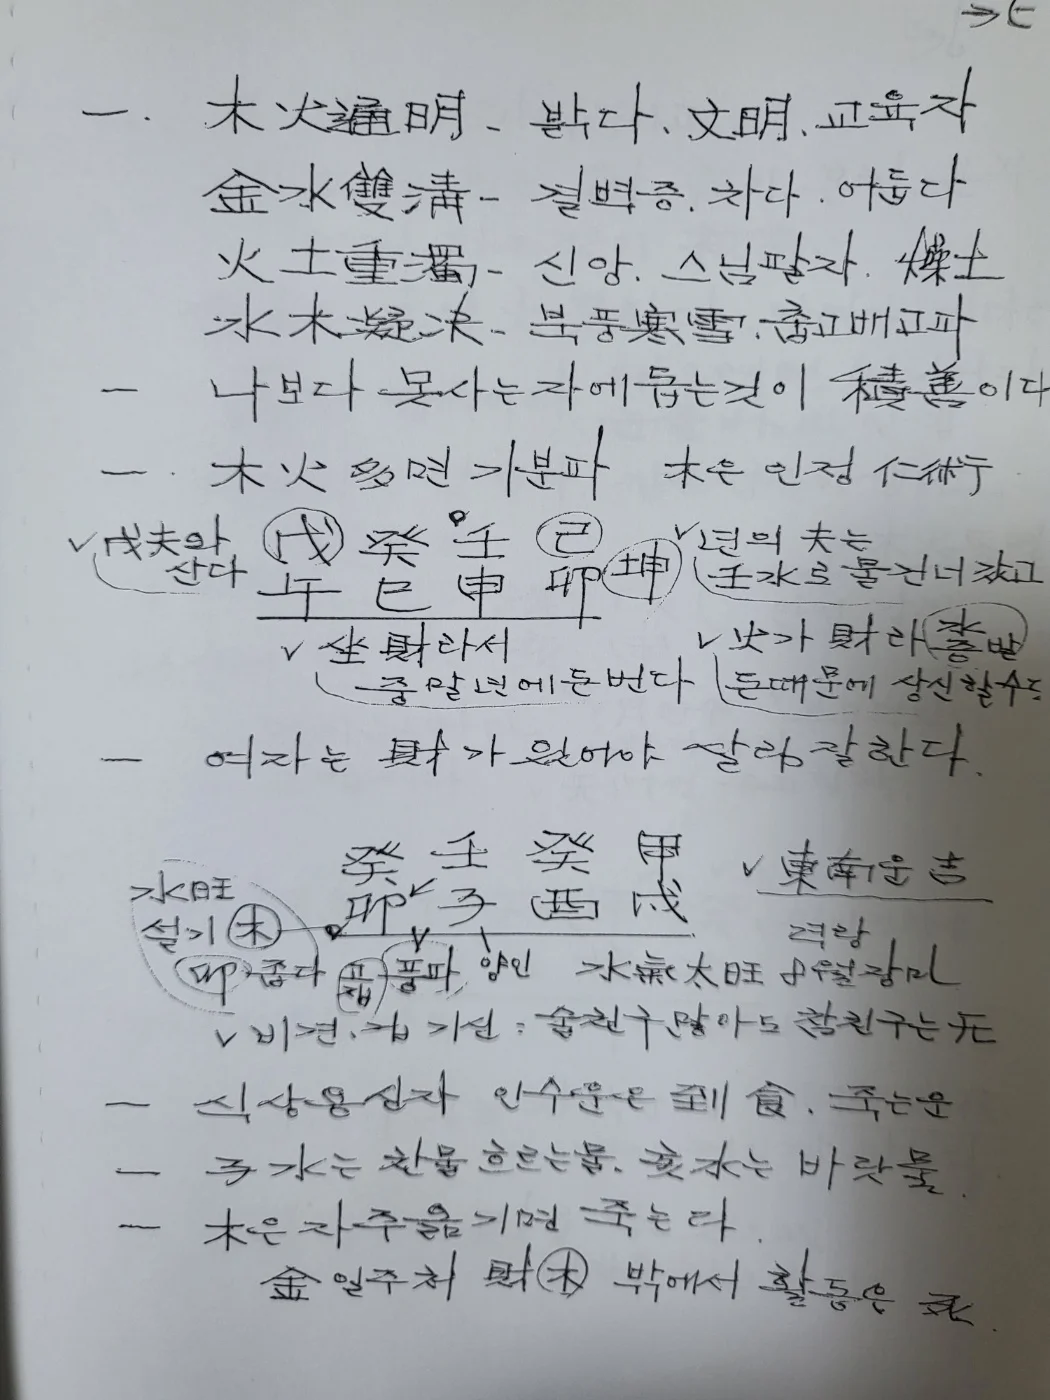 一. 木火通明 - 밝다. 文明. 교육자
金水雙溝 - 결벽증. 차다. 어둡다
火土重濁 - 신앙. 스님팔자. 燥土
水木凝决 - 북풍寒雪. 춥고배고파
一 나보다 못사는자에 돕는것이 積善이다
一. 木火多면 기분파 木은 인정 仁術
√戊夫와 산다
戊 癸 壬 己
午 巳 申 卯 坤
√년의 夫는 壬水로 물건너 갔고
√坐財라서 중말년에 돈번다
√火가 財라
돈때문에 상신할수도
一 여자는 財가 있어야 살림잘한다.
癸 壬 癸 甲
卯 子 酉 戌
√東南운 吉
水旺 설기 木
卯 좋다 풍파 양인 水氣太旺 8월장미
√비견.겁 기신 : 술친구많아도 참친구는 无
一 식상용신자 인수운은 到食. 죽는운
一 子水는 찬물 흐르는물. 亥水는 바닷물.
一 木은 자주옮기면 죽는다.
金일주처 財木 밖에서 활동은 死.